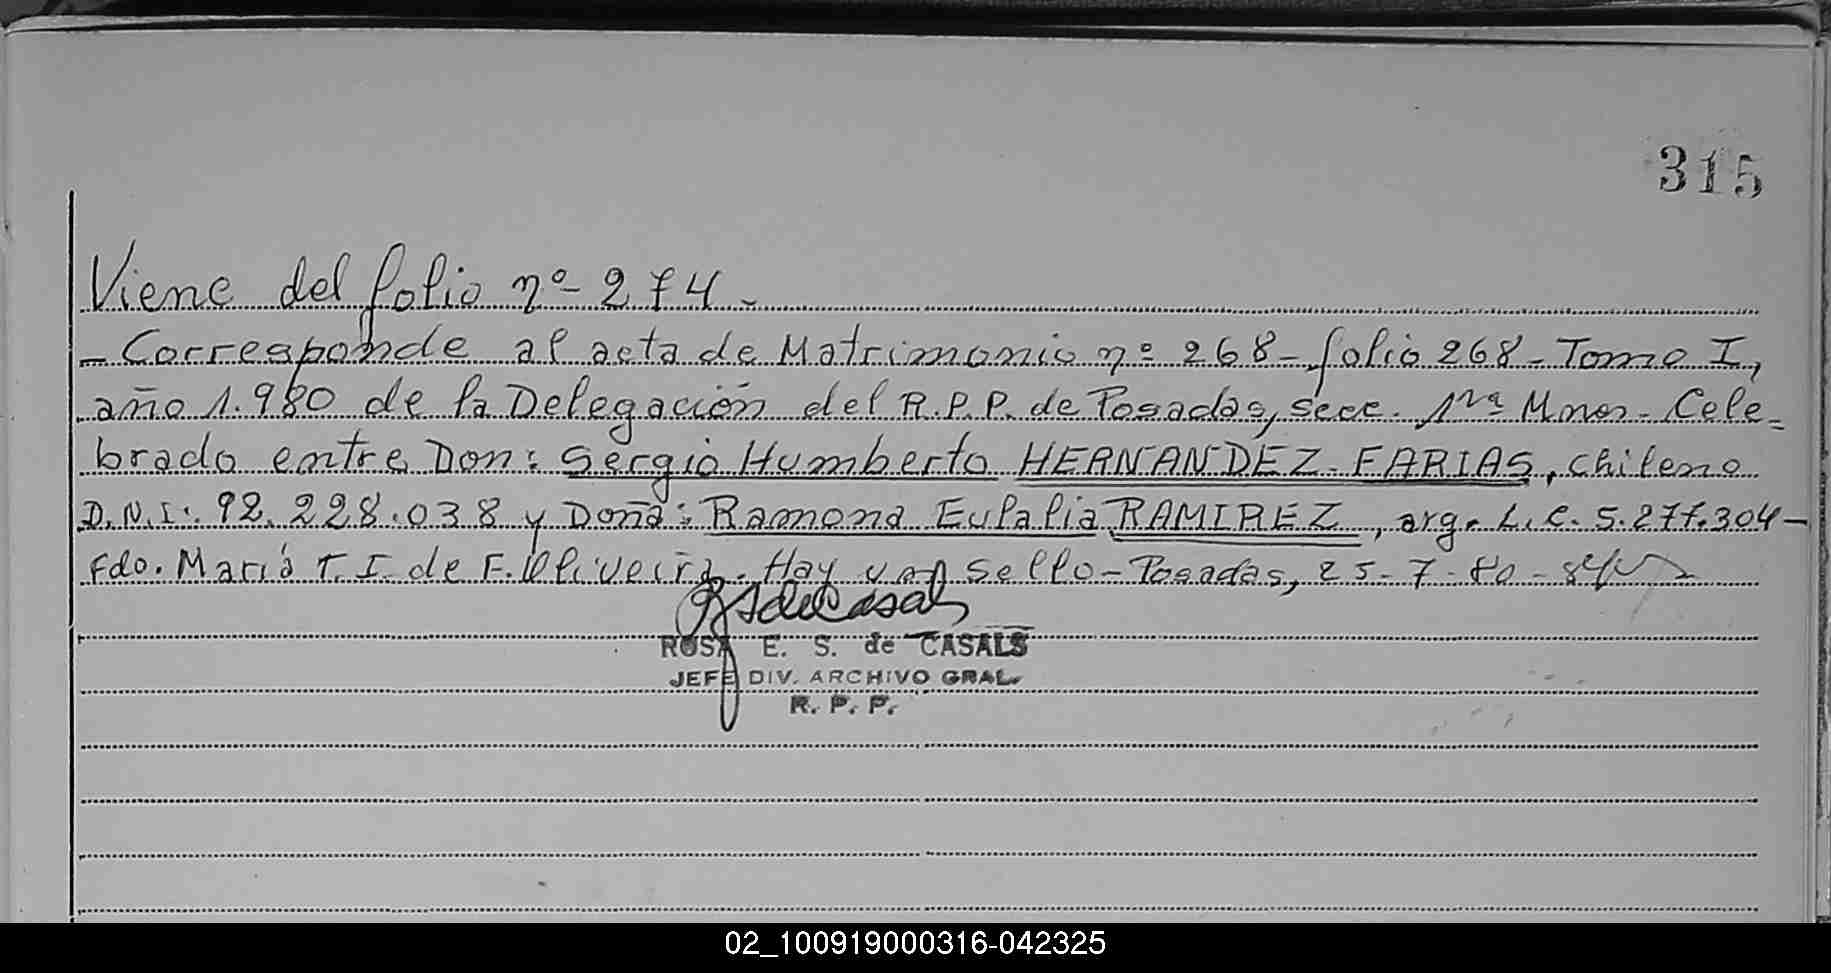 315
Viene del folio nº 274.
- Corresponde al acta de Matrimonio nº 268 - folio 268 - Tomo I,
año 1.980 de la Delegación del R.P.P. de Posadas, secc. 1ra Mnes. Cele=
brado entre Don: Sergio Humberto HERNANDEZ FARIAS, chileno
D.N.I: 92.228.038 y Doña: Ramona Eulalia RAMIREZ, arg. L.C. 5.277.304 -
Fdo. María T. I. de F. Oliveira. Hay un sello - Posadas, 25-7-80 -
ROSA E. S. de CASALS
JEFE DIV. ARCHIVO GRAL.
R. P. P.
02_100919000316-042325